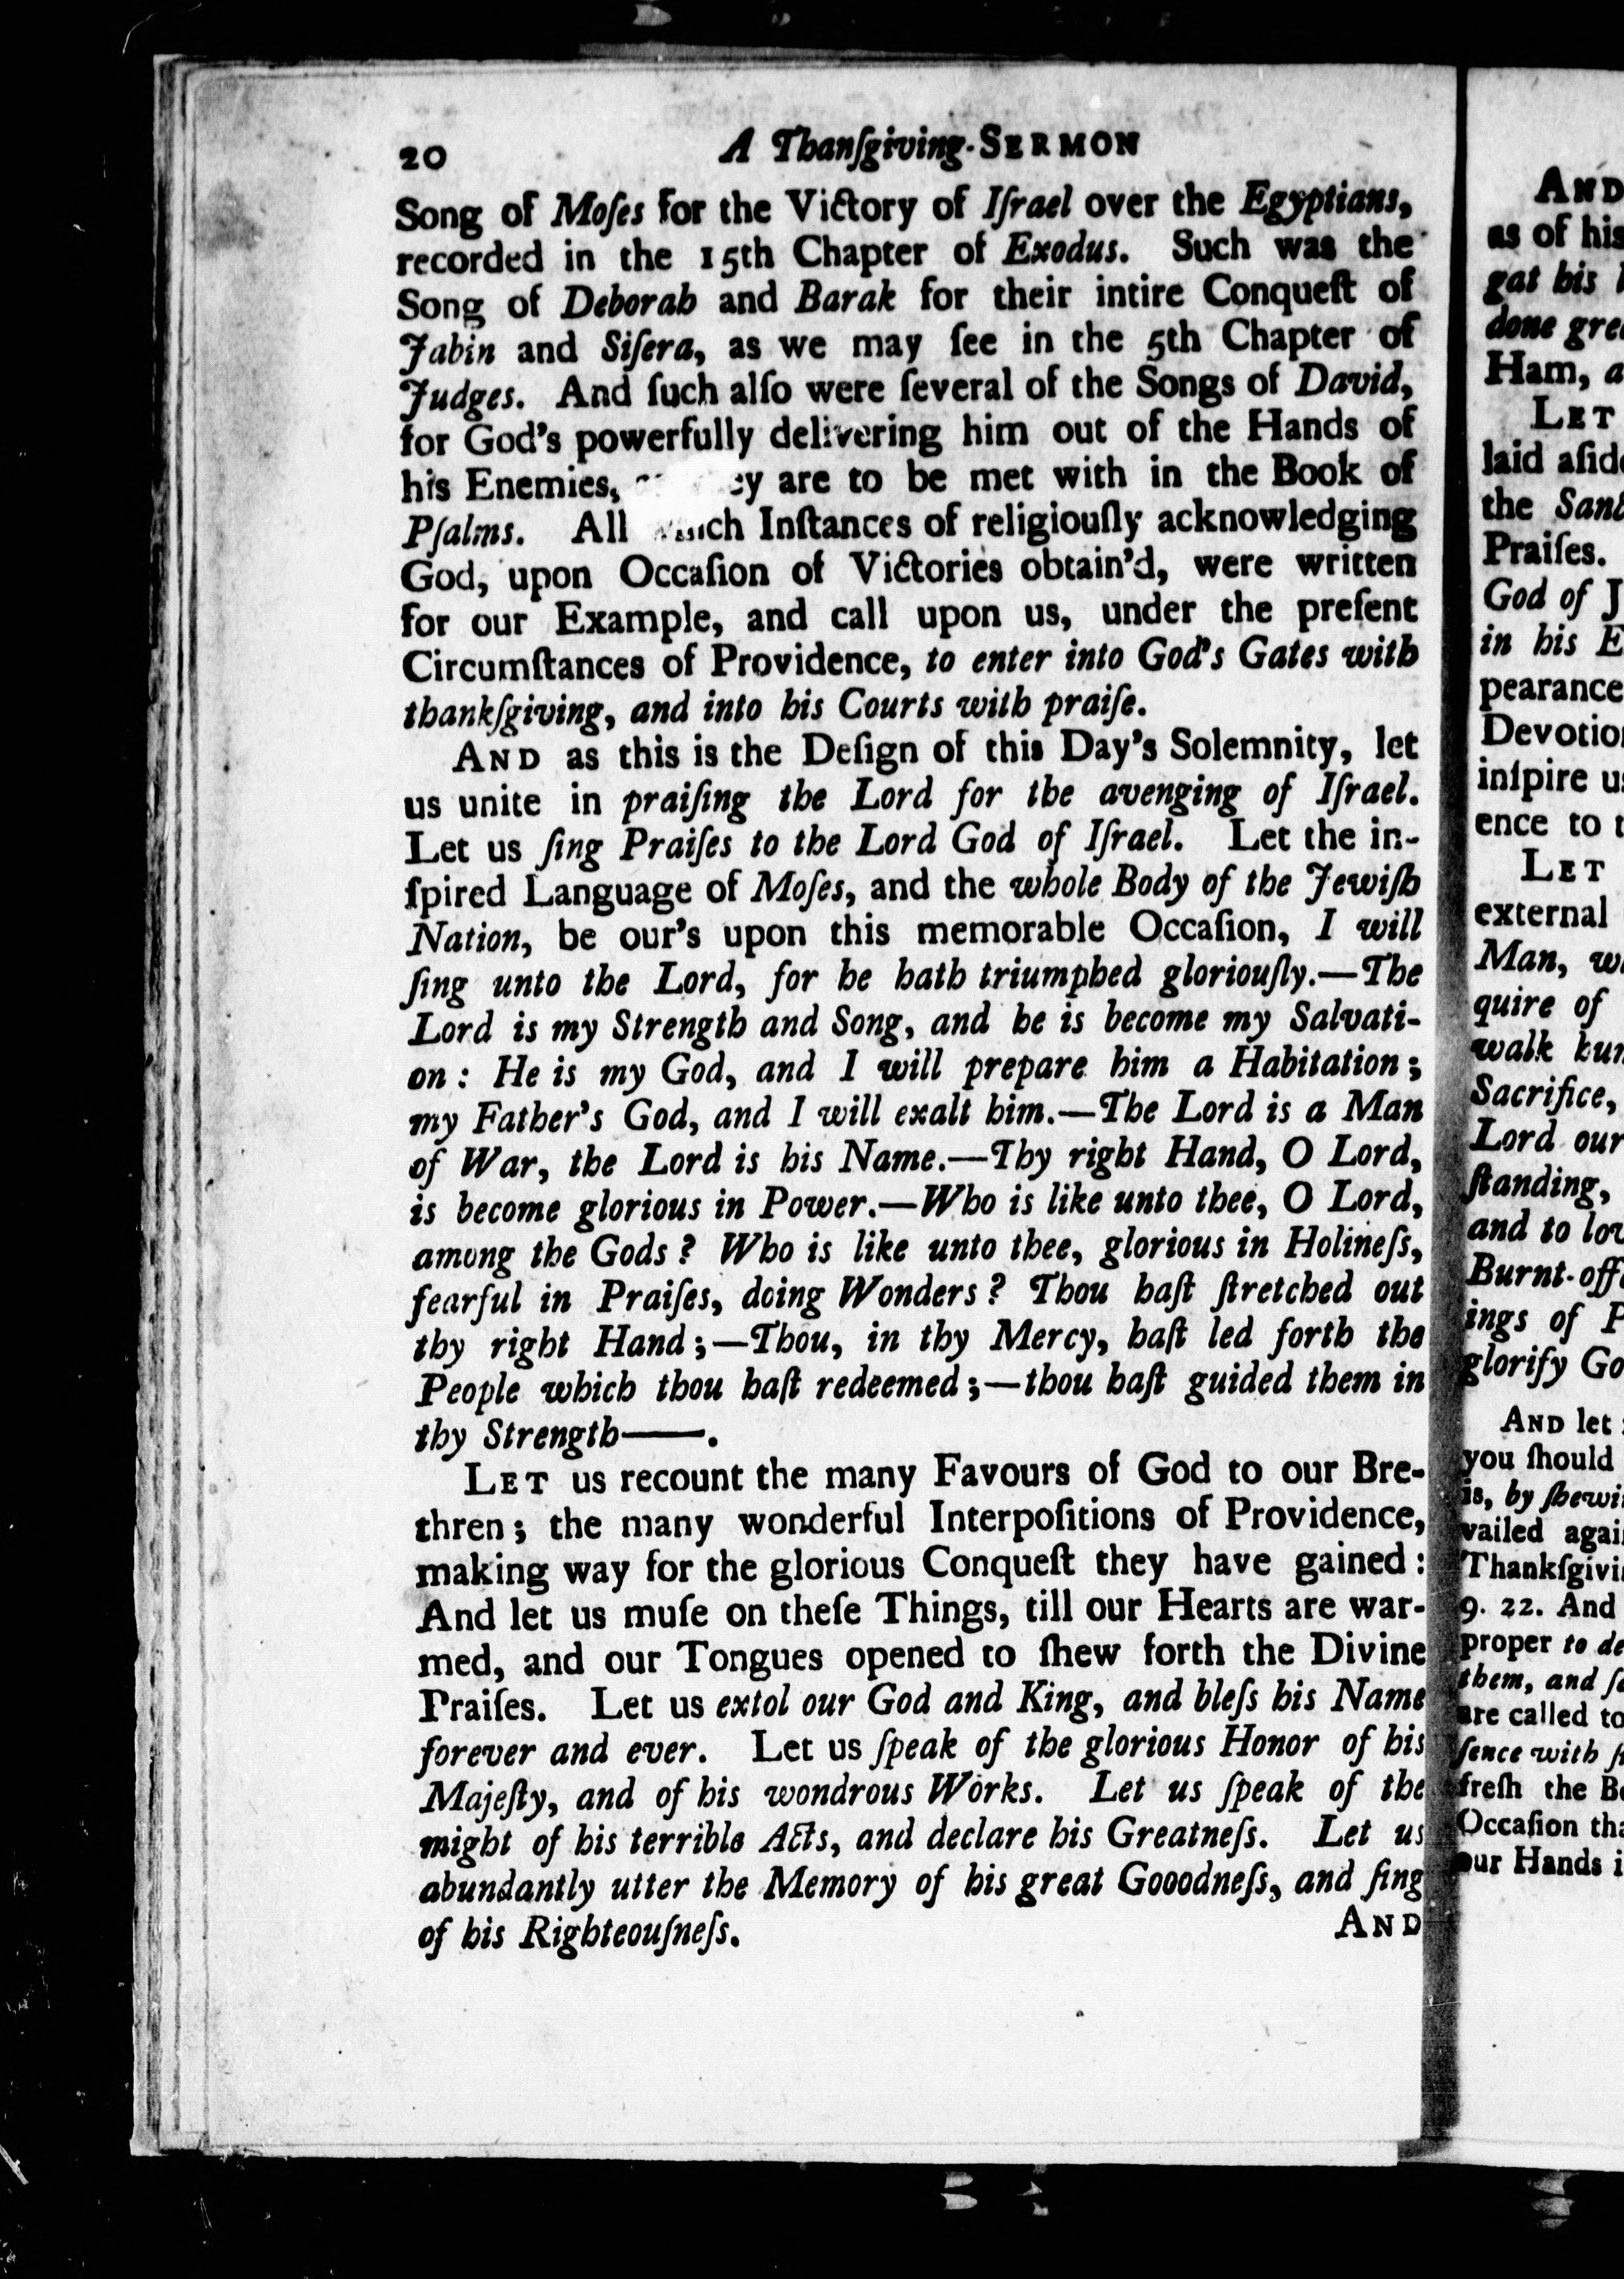 20 A Thanſgiving-SERMON
Song of Moſes for the Victory of Iſrael over the Egyptians,
recorded in the 15th Chapter of Exodus. Such was the
Song of Deborah and Barak for their intire Conqueſt of
Jabin and Siſera, as we may ſee in the 5th Chapter of
Judges. And ſuch alſo were ſeveral of the Songs of David,
for God's powerfully delivering him out of the Hands of
his Enemies, are to be met with in the Book of
Pſalms. All which Inſtances of religiouſly acknowledging
God, upon Occaſion of Victories obtain'd, were written
for our Example, and call upon us, under the preſent
Circumſtances of Providence, to enter into God's Gates with
thankſgiving, and into his Courts with praiſe.
AND as this is the Deſign of this Day's Solemnity, let
us unite in praiſing the Lord for the avenging of Iſrael.
Let us ſing Praiſes to the Lord God of Iſrael. Let the in-
ſpired Language of Moſes, and the whole Body of the Jewiſh
Nation, be our's upon this memorable Occaſion, I will
ſing unto the Lord, for he hath triumphed gloriouſly.—The
Lord is my Strength and Song, and he is become my Salvati-
on: He is my God, and I will prepare him a Habitation;
my Father's God, and I will exalt him.—The Lord is a Man
of War, the Lord is his Name.—Thy right Hand, O Lord,
is become glorious in Power.—Who is like unto thee, O Lord,
among the Gods? Who is like unto thee, glorious in Holineſs,
fearful in Praiſes, doing Wonders? Thou haſt ſtretched out
thy right Hand;—Thou, in thy Mercy, haſt led forth the
People which thou haſt redeemed;—thou haſt guided them in
thy Strength——.
LET us recount the many Favours of God to our Bre-
thren; the many wonderful Interpoſitions of Providence,
making way for the glorious Conqueſt they have gained:
And let us muſe on theſe Things, till our Hearts are war-
med, and our Tongues opened to ſhew forth the Divine
Praiſes. Let us extol our God and King, and bleſs his Name
forever and ever. Let us ſpeak of the glorious Honor of his
Majeſty, and of his wondrous Works. Let us ſpeak of the
might of his terrible Acts, and declare his Greatneſs. Let us
abundantly utter the Memory of his great Gooodneſs, and ſing
of his Righteouſneſs.
AND
AND
as of his
gat his
done
Ham,
LET
laid
the
Praiſes.
God of
in his
pearance
Devotion
inſpire
ence to
LET
external
Man,
quire of
walk
Sacrifice,
Lord our
ſtanding,
and to
Burnt-
ings of
glorify
AND let
you ſhould
is, by
vailed
9. 22. And
proper to
them, and
are called to
ſence with
freſh the
Occaſion
our Hands